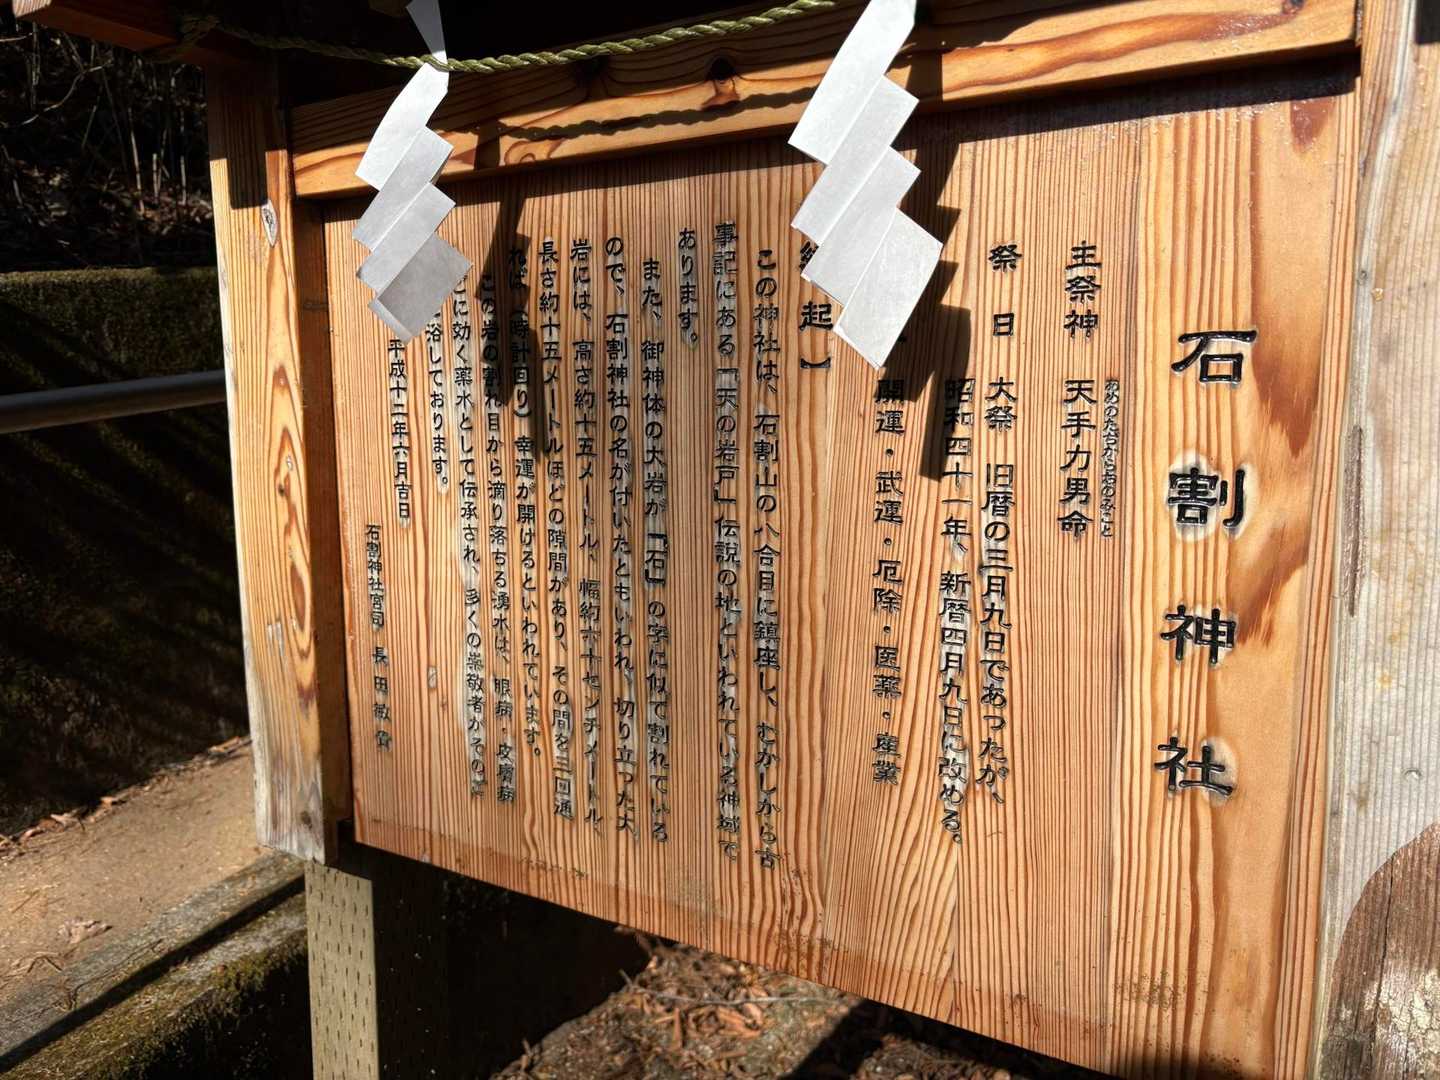 石割神社
あめのたぢからおのみこと
主祭神 天手力男命
祭日 大祭 旧暦の三月九日であったが、
昭和四十一年、新暦四月九日に改める。
開運・武運・厄除・医薬・産業
起】
この神社は、石割山の八合目に鎮座し、むかしから古
事記にある「天の岩戸」伝説の地といわれている神域で
あります。
また、御神体の大岩が「石」の字に似て割れている
ので、石割神社の名が付いたともいわれ、切り立った大
岩には、高さ約十五メートル、幅約六十センチメートル、
長さ約十五メートルほどの隙間があり、その間を三回通
れば（時計回り）幸運が開けるといわれています。
この岩の割れ目から滴り落ちる湧水は、眼病・皮膚病
に効く薬水として伝承され、多くの崇敬者がその
浴しております。
平成十二年六月吉日
石割神社宮司 長田